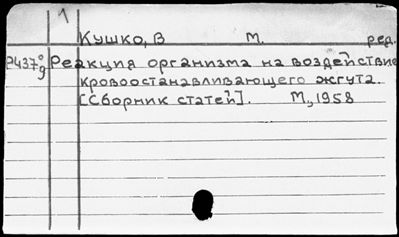 1
Кушко, В М. ред.
Р437 Реакция организма на воздействие
кровоостанавливающего жгута.
[Сборник статей]. М., 1958